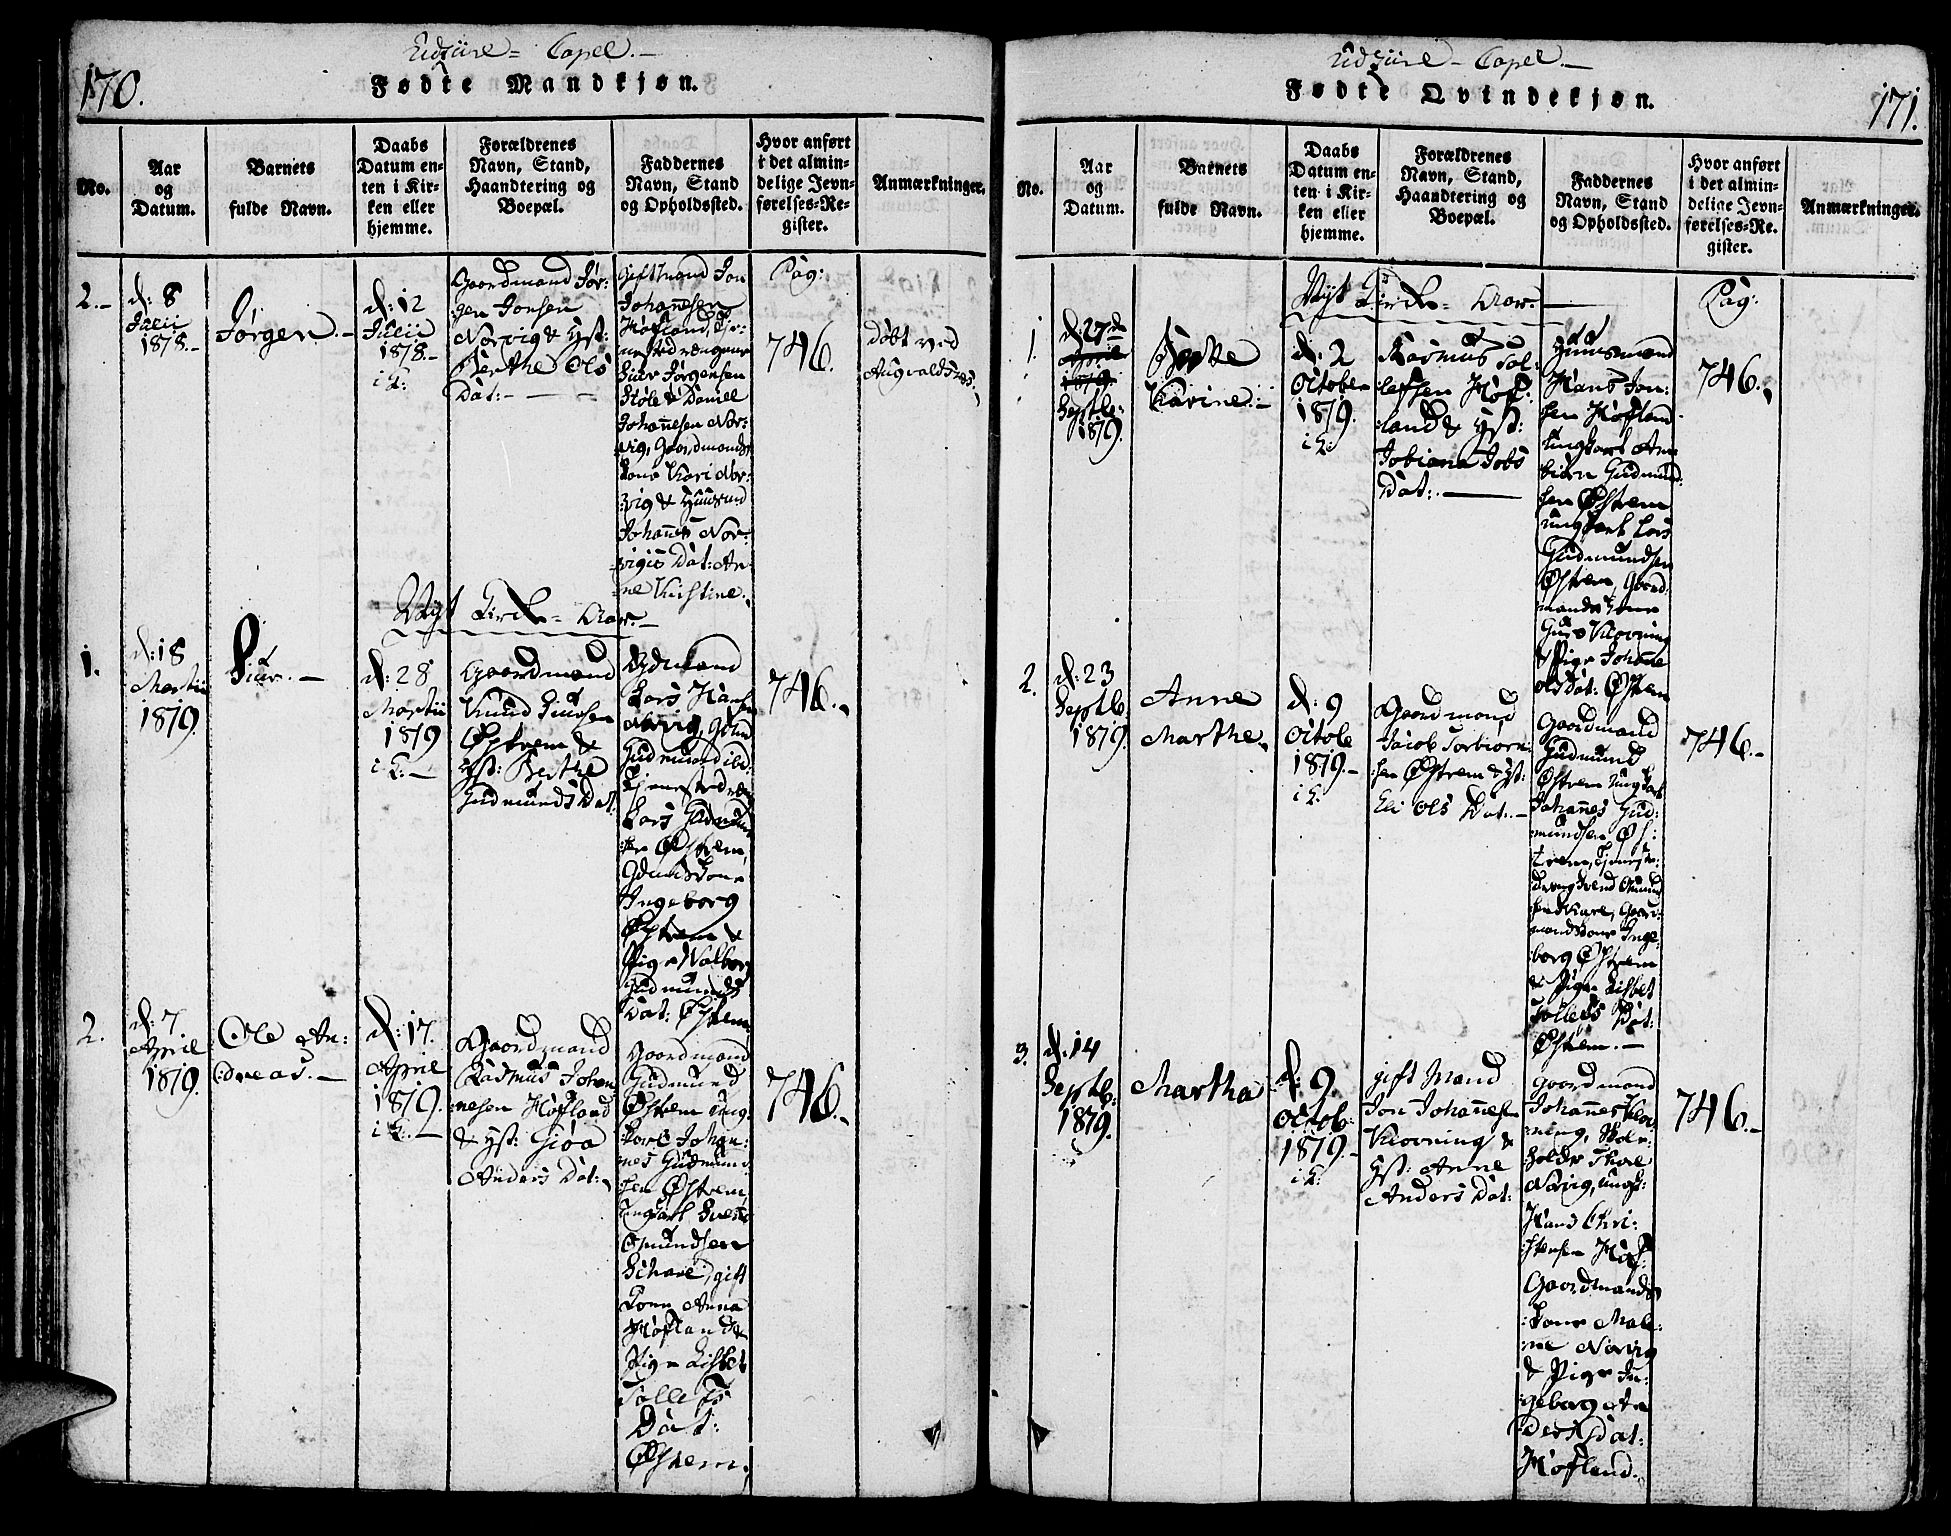 Udsiire - Capel. -
170.
Fødte Mandkjøn.
No.
Aar
og
Datum.
Barnets
fulde Navn.
Daabs
Datum en-
ten i Kir-
ken eller
hjemme.
Forældrenes
Navn, Stand,
Haandtering og
Boepæl.
Faddernes
Navn, Stand
og Opholdssted.
Hvor anført
i det almin-
delige Jevn-
førelses-Re-
gister.
Anmærkninger.
2.-
d: 8
Julii
1878.-
Jørgen.-
d: 12
Julii
1878.-
i K:
Gaardmand Jør-
gen Jonsen
Norvig & Hst:
Berthe Ols
Dat:-
gift Mand Jon
Johannesen
Hofland, Tje-
Siur Jørgensen
Støle & Daniel
Johannesen Nor-
vig, Gaardmands
kone Kari Nor-
vig & Huusmd
Johannes Nor-
vigs Dat: An-
ne Kirstine.
Pag:
746.
døbt ved
Augvaldsnes.
Nyt Kirke- Aar.-
1.
d: 18
Martii
1879.
Siur.-
d: 28
Martii
1879
i K:-
Gaardmand
Knud Knudsen
Østrem &
Hst: Berthe
Gudmunds Dat:
Gdmand
Lars Hansen
Norvig, Gdm
Gudmund ibd:
Tjenestedreng
Lars Gudmund-
sen Østrem,
Gdmds kone
Ingeborg
Østrem &
Pige Valborg
Gudmunds
Dat: Østrem
746.-
2.
d: 7.
April
1879.
Ole An-
:dreas.-
d: 17.
April
1879.
i K:-
Gaardmand
Rasmus Johan-
nesen Hofland
& Hst: Gjøa
Anders Dat:
Gaardmand
Gudmund
Østrem ung-
karl Johan-
nes Gudmund-
sen Østrem,
ungkarl Svend
Omundsen
Schare, gift
Kone Anna
Hofland &
Pige Lisbet
Tollefs
Dat:
Østrem.
746.-
Udsiire - Capel. -
171.
Fødte Qvindekjøn.
No.
Aar
og
Datum.
Barnets
fulde Navn.
Daabs
Datum en-
ten i Kir-
ken eller
hjemme.
Forældrenes
Navn, Stand,
Haandtering og
Boepæl.
Faddernes
Navn, Stand
og Opholdssted.
Hvor anført
i det almin-
delige Jevn-
førelses-Re-
gister.
Anmærkninger.
Nyt Kirke- Aar.-
Pag:
1.
d: 27de
April
1879.
Septb:
1879.
Karine.-
d: 2
October
1879.
i K:
Rasmus Tol-
lefsen Hof-
land & Hst:
Tobiana Jobs
Dat:.-
Huusmand
Hans Jon-
sen Hofland
ungkarl An-
biørn Gudmund-
sen Østrem
ungkarl Lars
Gudmundsen
Østrem, Gaard-
mands kone
Guro Klovning
& Pige Johanne
Ols Dat: Østrem
746.-
2.
d: 23
Septb:
1879.
Anne
Marthe.
d: 9
Octob
1879.-
i K:
Gaardmand
Jacob Torbiørn-
sen Østrem & Hst:
Eli Ols Dat:.-
Gaardmand
Gudmund
Østrem ungkarl
Johannes Gud-
mundsen Øs-
trem, Tjeneste-
dreng Svend Omund-
sen Skare, Gaard-
mands kone Inge-
borg Østrem
& Pige Lisbet
Tollefs Dat:
Østrem.-
746.-
3.
d: 14
Septb:
1879.
Martha
d: 9
Octob:
1879.-
i K:
gift Mand
Jon Johannesen
Klovning &
Hst: Anne
Anders Dat:
Gaardmand
Johannes Klov-
ning,
Norvig, ungk:
Hans Chri-
stensen Hof-
Gaardmands
kone Male-
ne Norvig
& Pige In-
geborg An-
ders Dat:
Hofland.
746.-